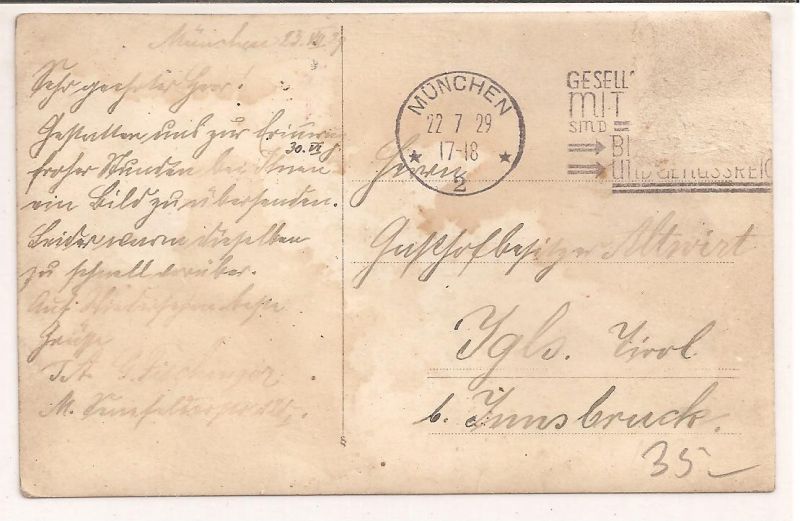 München 23. VII. 29
Sehr geehrter Herr!
Gestatten uns zur Erinnerung
30. VI
froher Stunden bei Ihnen
ein Bild zu übersenden.
Leider waren dieselben
zu schnell vorüber.
Auf Wiedersehen beste
Grüße
MÜNCHEN
22 7 29
17-18
2
GESELL
MIT
SIND
UND GENUSSREIC
Herrn
Gasthofbesitzer Altwirt
Igls. Tirol
b. Innsbruck.
35-